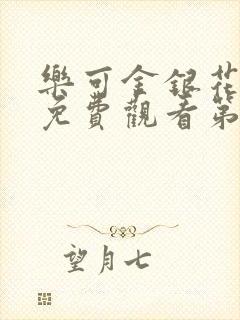 樂可金銀花
免費觀看第
望月七